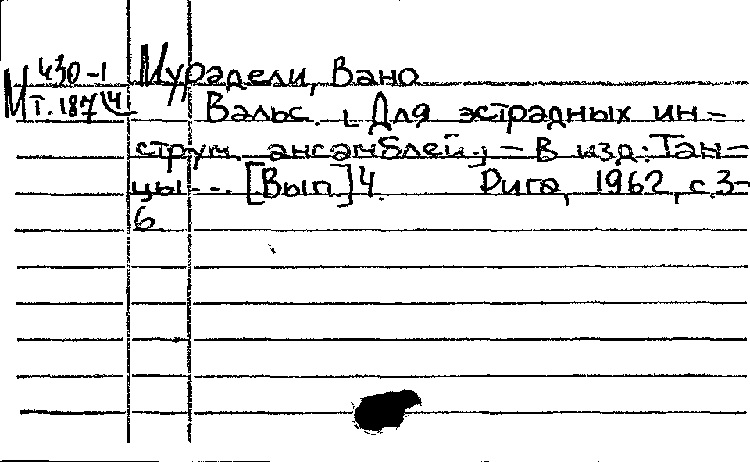 М 430-1
Т. 187/4
Мурадели, Вано
Вальс. [Для эстрадных ин-
струм. ансамблей.] - В изд: Тан-
цы... [Вып.] 4. Рига, 1962, с.3-
6.